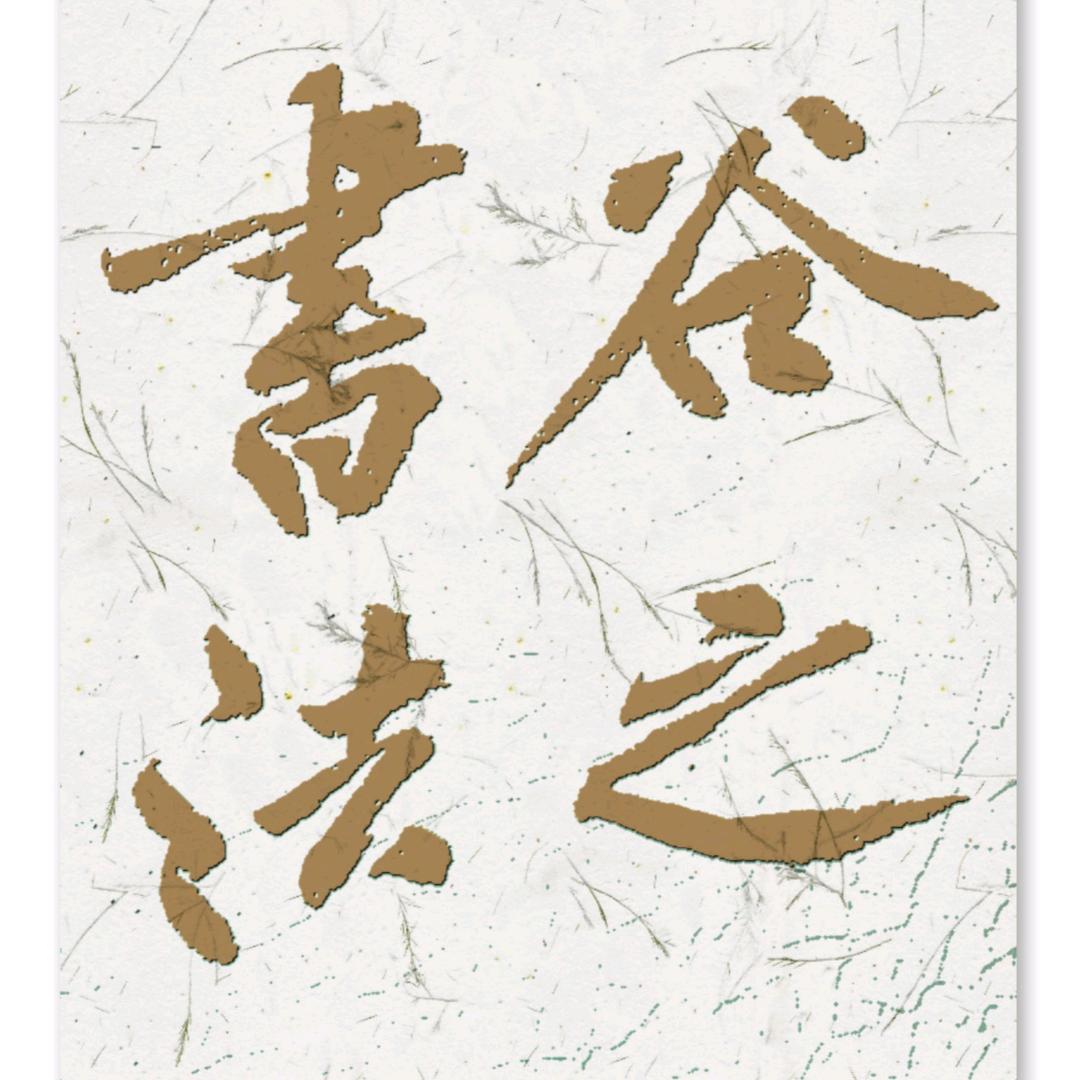 谷之
書法